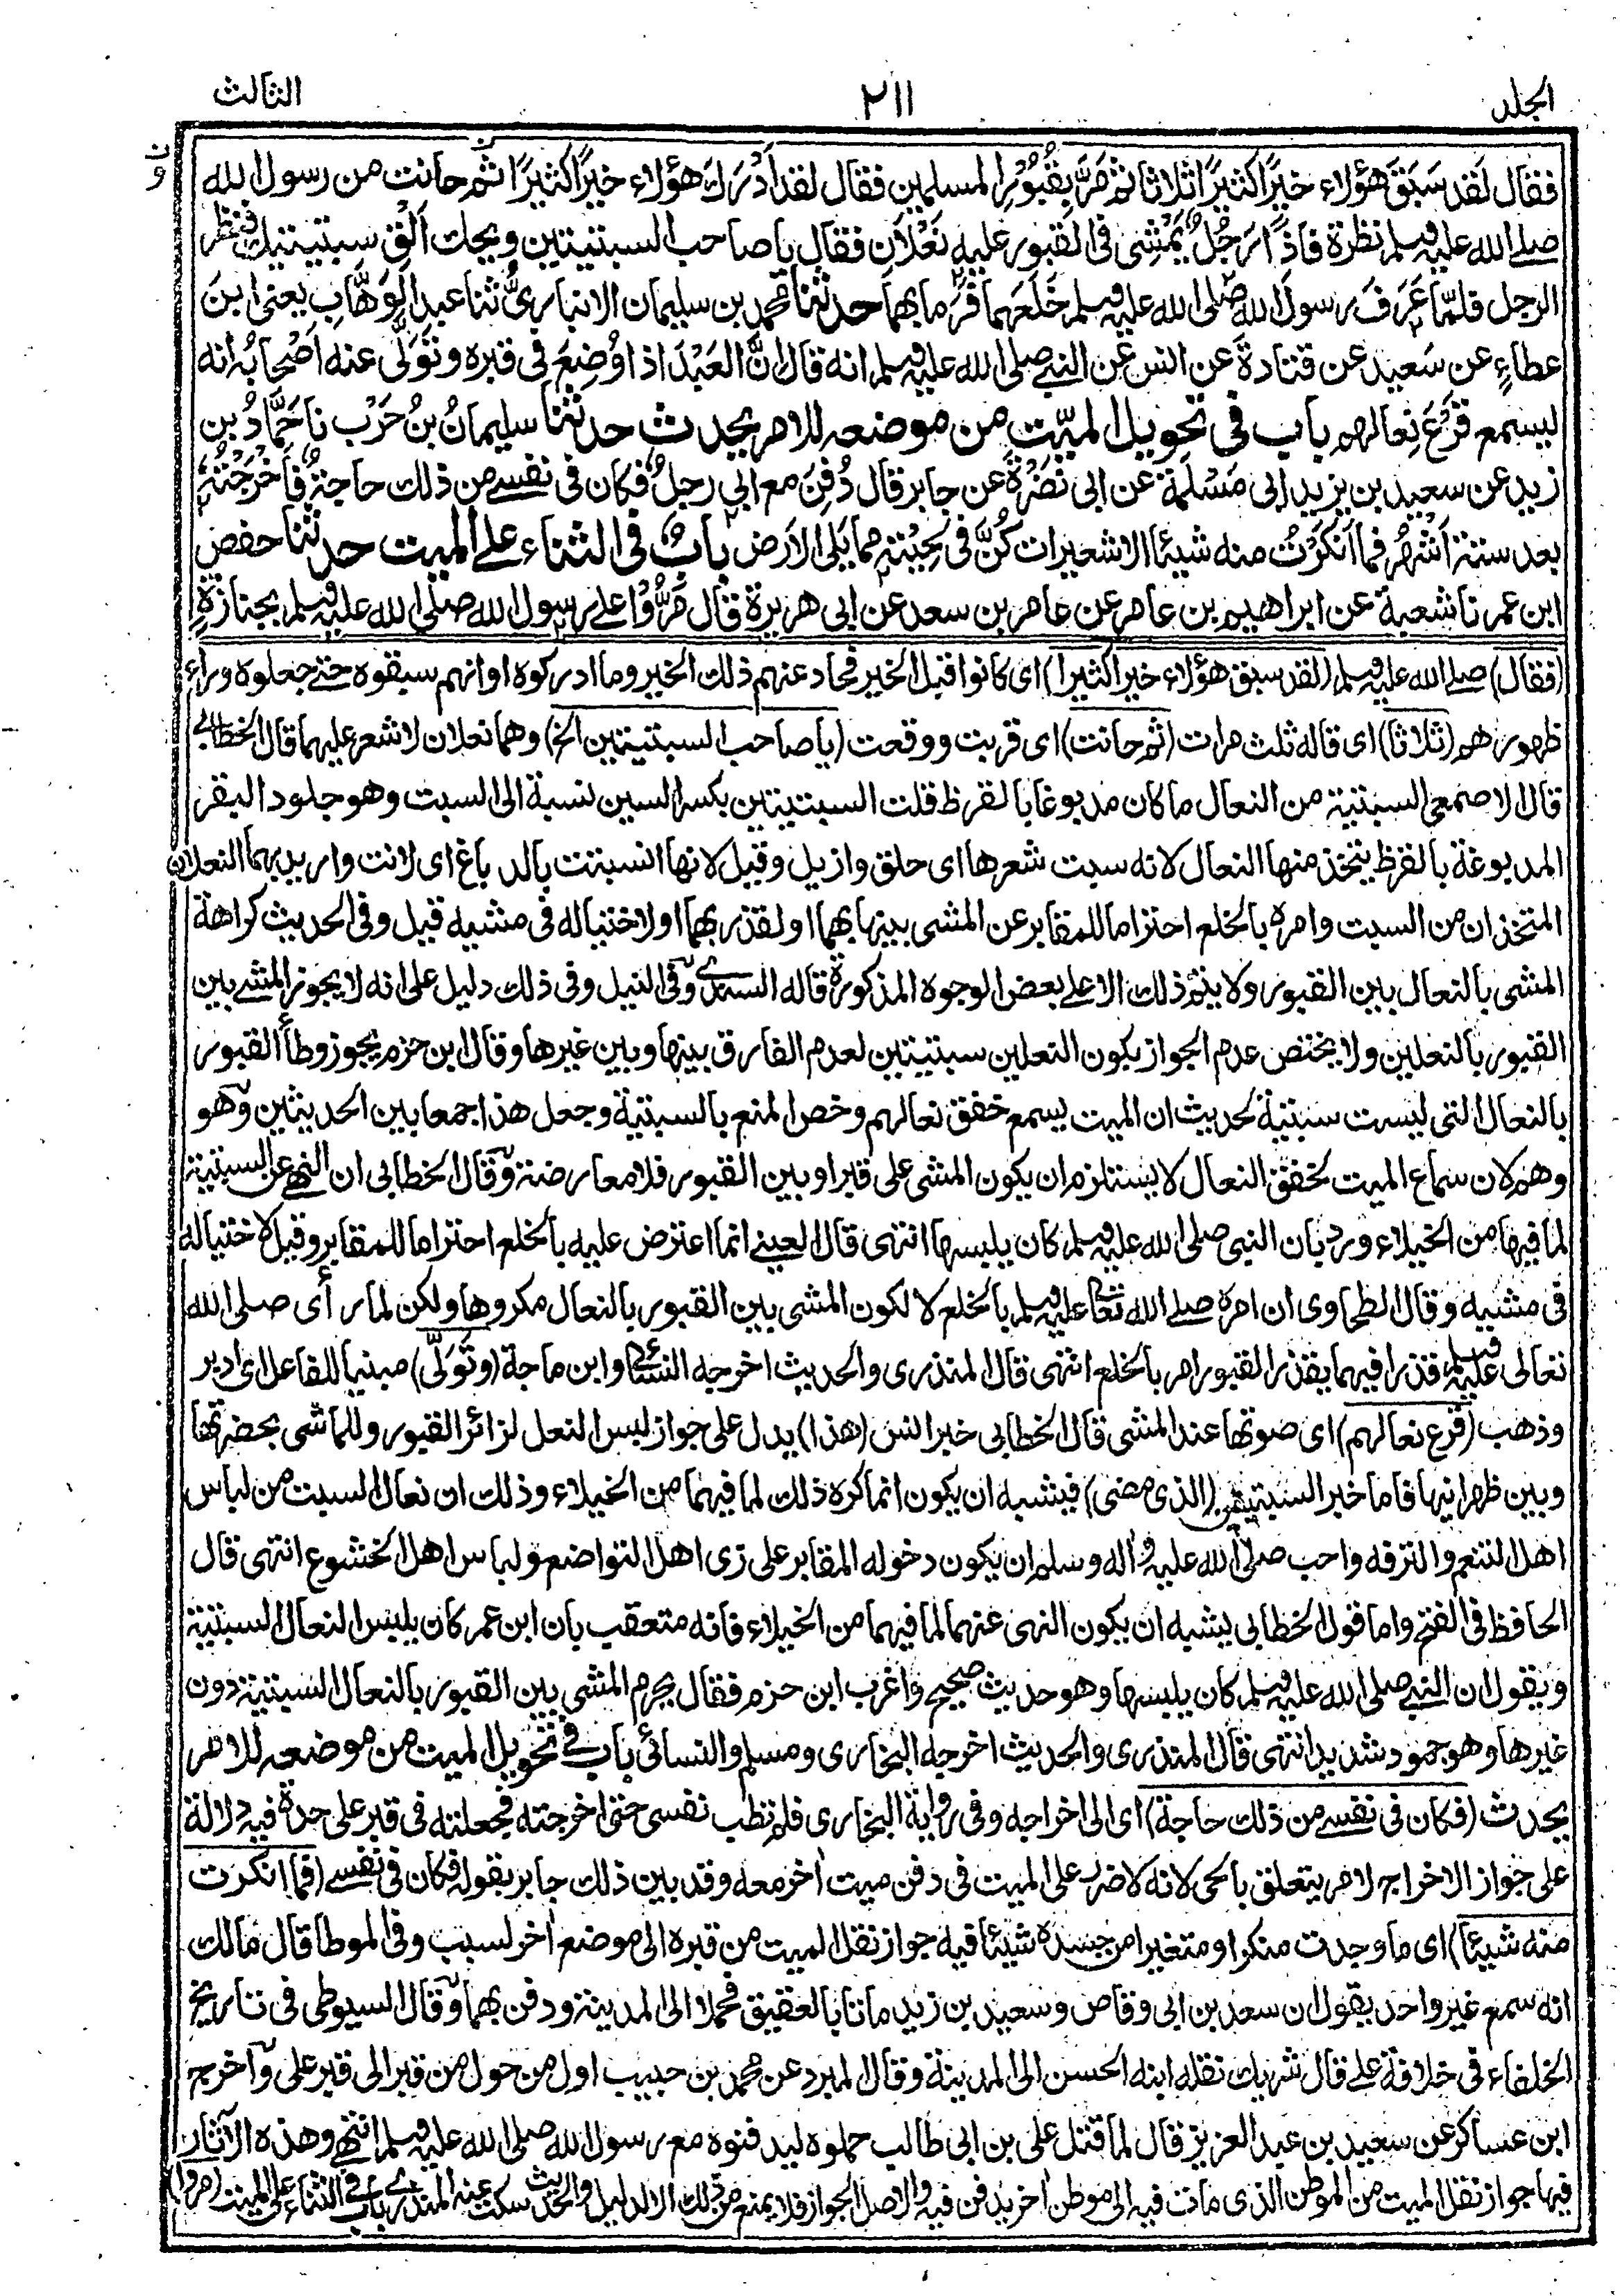 الجلد ٢١١ الثالث
فقال لَقَد سَبَقَ هؤلاء خيرًا كثيرًا ثلاثا ثم مَرَّ بقُبُورِ المسلمين فقال لقد اَدْرَكَ هؤلاء خيرًا كثيرًا ثم حانت من رسول الله
صلى الله عليه وسلم نظرة فاذا رَجُلٌ يَمْشِى فى القبور عليه نَعْلَان فقال يا صاحب السبتيتين ويحك اَلْقِ سبتيتيك فنظر
الرجل فلمّا عَرَفَ رسولَ الله صلى الله عليه وسلم خَلَعَهما فرَمابهما حدثنا محمد بن سليمان الانبارىُّ ثنا عبد الوَهَّابِ يعنى ابنَ
عطاءٍ عن سَعيد عن قتادةَ عَن انس عن النبى صلى الله عليه وسلم انه قال اِنَّ العَبْدَ اذا وُضِعَ فى قبره وتَوَلَّى عنه اَصْحَابُه انه
ليسمع قَرْعَ نِعالهم باب فى تحويل الميّت من موضعه للامر يحدث حدثنا سليمانُ بنُ حَرْب نا حَمَّادُ بن
زيد عن سعيد بن يزيد ابى مَسْلَمة عن ابى نَضْرَةَ عن جابر قال دُفِنَ مع ابى رجلٌ فكان فى نفسى من ذلك حاجةٌ فأخْرَجْتُه
بعد ستة اَشْهُر فما اَنْكَرْتُ منه شيئا الا شعيرات كُنَّ فى لِحْيَتِه مما يَلِى الاَرض بابٌ فى الثناء على الميت حدثنا حفص
ابن عمر نا شعبة عن ابراهيم بن عامر عن عامر بن سعد عن ابى هريرة قال مَرُّوْا على رسول الله صلى الله عليه وسلم بجنازةٍ
(فقال) صلى الله عليه وسلم (لقد سبق هؤلاء خيرا كثيرا) اى كانوا قبل الخير فحاد عنهم ذلك الخير وما ادركوه او انهم سبقوه حتى جعلوه وراء
ظهورهم (ثلاثا) اى قاله ثلث مرات (ثم حانت) اى قربت ووقعت (يا صاحب السبتيتين الخ) وهما نعلان لا شعر عليهما قال الخطابى
قال الاصمعى السبتية من النعال ما كان مدبوغا بالقرظ قلت السبتيتين بكسر السين نسبة الى السبت وهو جلود البقر
المدبوغة بالقرظ يتخذ منها النعال لانه سبت شعرها اى حلق وازيل وقيل لانها انسبتت بالدباغ اى لانت واريد بهما النعلان
المتخذان من السبت وامره بالخلع احتراما للمقابر عن المشى بينها بهما او لقذر بهما او لاختياله فى مشيه قيل وفى الحديث كراهة
المشى بالنعال بين القبور ولا يتم ذلك الا على بعض الوجوه المذكورة قاله السندى وفى النيل وفى ذلك دليل على انه لا يجوز المشى بين
القبور بالنعلين ولا يختص عدم الجواز بكون النعلين سبتيتين لعدم الفارق بينها وبين غيرها وقال ابن حزم يجوز وطأ القبور
بالنعال التى ليست سبتية لحديث ان الميت يسمع خفق نعالهم وخص المنع بالسبتية وجعل هذا جمعا بين الحديثين وهو
وهم لان سماع الميت لخفق النعال لا يستلزم ان يكون المشى على قبر او بين القبور فلا معارضة وقال الخطابى ان النهى عن السبتية
لما فيها من الخيلاء ورد بان النبى صلى الله عليه وسلم كان يلبسها انتهى قال العينى انما اعترض عليه بالخلع احتراما للمقابر وقيل لاختياله
فى مشيه وقال الطحاوى ان امره صلى الله تعالى عليه وسلم بالخلع لا لكون المشى بين القبور بالنعال مكروها ولكن لما رأى صلى الله
تعالى عليه وسلم قذرا فيهما يقذر القبور امر بالخلع انتهى قال المنذرى والحديث اخرجه النسائى وابن ماجة (وتَوَلَّى) مبنيا للفاعل اى ادبر
وذهب (قرع نعالهم) اى صوتها عند المشى قال الخطابى خبر انس (هذا) يدل على جواز لبس النعل لزائر القبور وللماشى بحضرتها
وبين ظهرانيها فاما خبر السبتيتين (الذى مضى) فيشبه ان يكون انما كره ذلك لما فيهما من الخيلاء وذلك ان نعال السبت من لباس
اهل التنعم والترفه واحب صلى الله عليه واله وسلم ان يكون دخوله المقابر على زى اهل التواضع ولباس اهل الخشوع انتهى قال
الحافظ فى الفتح واما قول الخطابى يشبه ان يكون النهى عنهما لما فيهما من الخيلاء فانه متعقب بان ابن عمر كان يلبس النعال السبتية
ويقول ان النبى صلى الله عليه وسلم كان يلبسها وهو حديث صحيح واغرب ابن حزم فقال يحرم المشى بين القبور بالنعال السبتية دون
غيرها وهو جمود شديد انتهى قال المنذرى والحديث اخرجه البخارى ومسلم والنسائى باب فى تحويل الميت من موضعه للامر
يحدث (فكان فى نفسى من ذلك حاجة) اى الى اخراجه وفى رواية البخارى فلم تطب نفسى حتى اخرجته فجعلته فى قبر على حدة فيه دلالة
على جواز الاخراج لامر يتعلق بالحى لانه لا ضرر على الميت فى دفن ميت اٰخر معه وقد بين ذلك جابر بقوله فكان فى نفسى (فما انكرت
منه شيئا) اى ما وجدت منكرا ومتغيرا من جسده شيئا فيه جواز نقل الميت من قبره الى موضع اٰخر لسبب وفى الموطا قال مالك
انه سمع غير واحد يقول ان سعد بن ابى وقاص وسعيد بن زيد ماتا بالعقيق فحملا الى المدينة ودفن بها وقال السيوطى فى تاريخ
الخلفاء فى خلافة على قال شريك نقله ابنه الحسن الى المدينة وقال المبرد عن محمد بن حبيب اول من حول من قبر الى قبر على واخرج
ابن عساكر عن سعيد بن عبد العزيز قال لما قتل على بن ابى طالب حملوه ليدفنوه مع رسول الله صلى الله عليه وسلم انتهى وهذه الآثار
فيها جواز نقل الميت من الموطن الذى مات فيه الى موطن اٰخر يدفن فيه والاصل الجواز فلا يمنع من ذلك الا لدليل والحديث سكت عنه المنذرى باب فى الثناء على الميت (مروا)